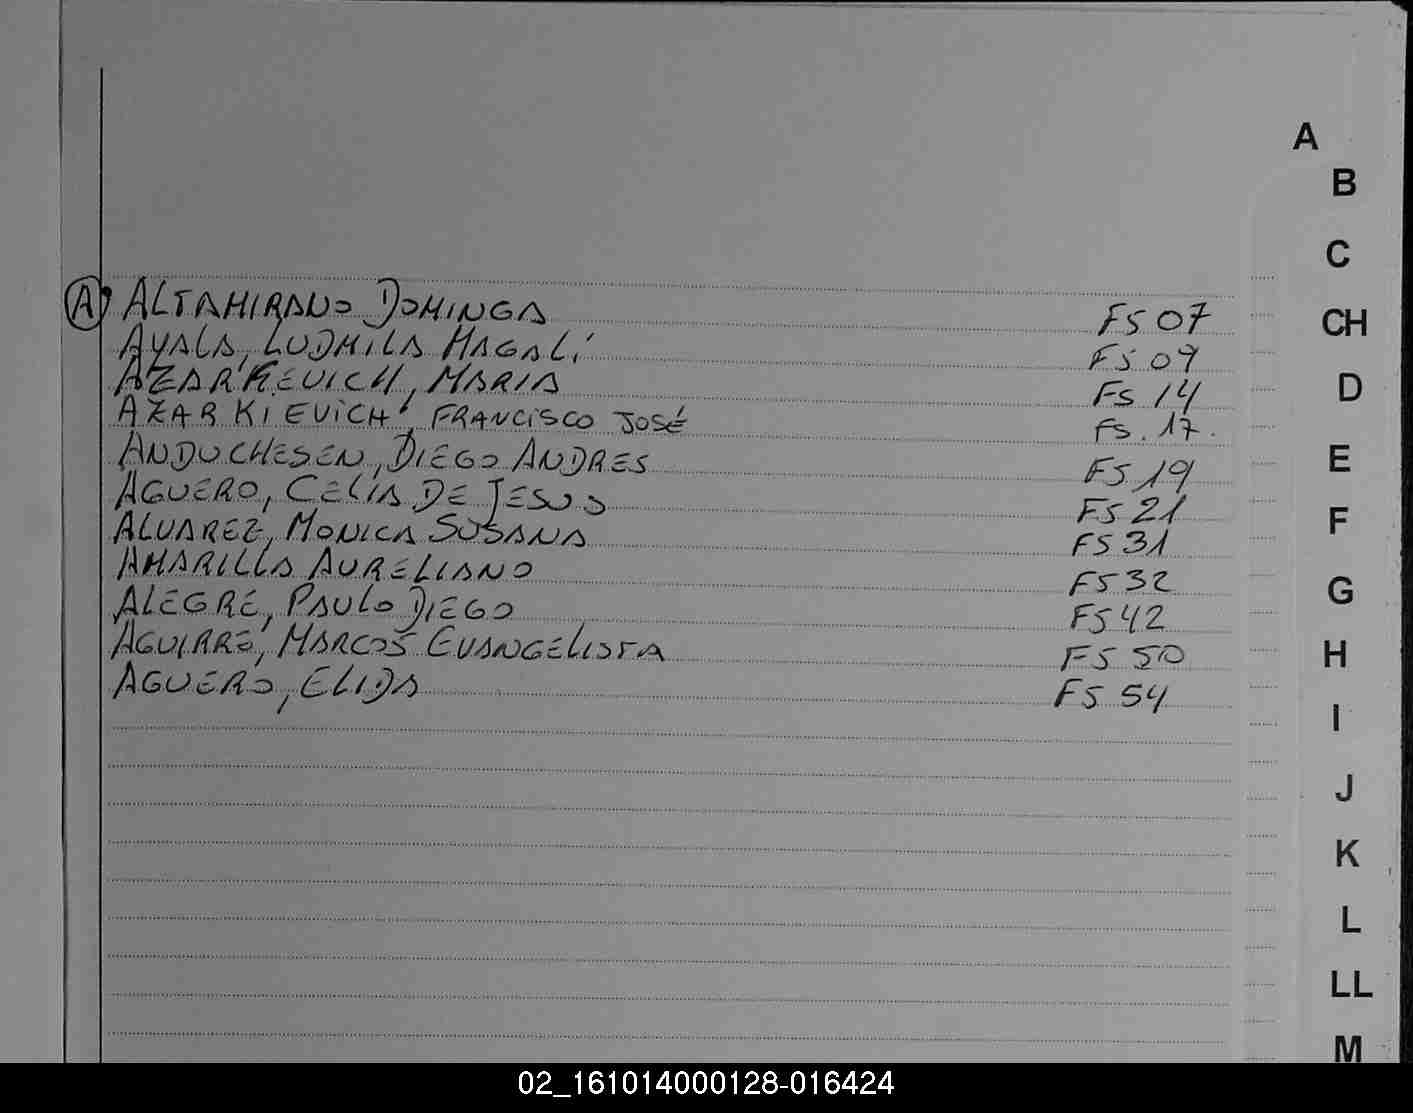 A) ALTAMIRANO DOMINGA FS 07
AYALA, LUDMILA MAGALÍ FS 09
AZARKEVICH, MARIA FS 14
AZARKIEVICH, FRANCISCO JOSÉ FS. 17.
ANDUCHESEN, DIEGO ANDRES FS 19
AGUERO, CELIA DE JESUS FS 21
ALVAREZ, MONICA SUSANA FS 31
AMARILLA AURELIANO FS 32
ALEGRE, PAULO DIEGO FS 42
AGUIRRE, MARCOS EVANGELISTA FS 50
AGUERO, ELIDA FS 54
A
B
C
CH
D
E
F
G
H
I
J
K
L
LL
M
02_161014000128-016424